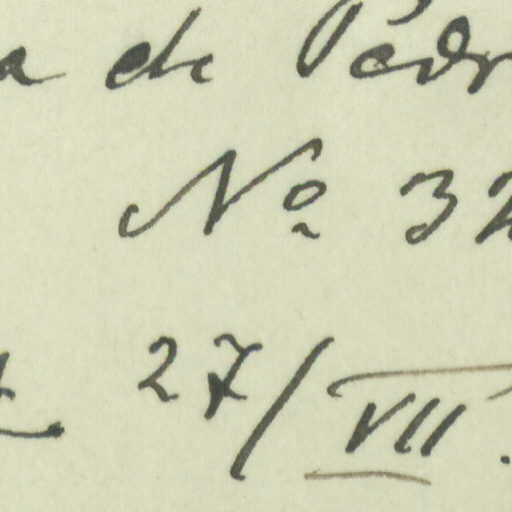 a de Pedr
Nº 32
27/VII.